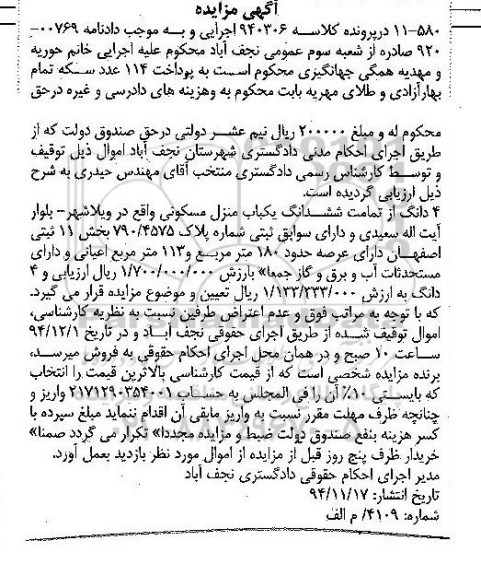 آگهی مزایده
۱۱-۵۸۰ درپرونده کلاسه ۹۴۰۳۰۶ اجرایی و به موجب دادنامه ۰۰۷۶۹-
۹۲۰ صادره از شعبه سوم عمومی نجف آباد محکوم علیه اجرایی خانم حوریه
و مهدیه همگی جهانگیزی محکوم است به پرداخت ۱۱۴ عدد سکه تمام
بهارآزادی و طلای مهریه بابت محکوم به وهزینه های دادرسی و غیره درحق
محکوم له و مبلغ ۲۰۰۰۰۰ ریال نیم عشر دولتی درحق صندوق دولت که از
طریق اجرای احکام مدنی دادگستری شهرستان نجف آباد اموال ذیل توقیف
و توسط کارشناس رسمی دادگستری منتخب آقای مهندس حیدری به شرح
ذیل ارزیابی گردیده است.
۴ دانگ از تمامت ششدانگ یکباب منزل مسکونی واقع در ویلاشهر- بلوار
آیت اله سعیدی و دارای سوابق ثبتی شماره پلاک ۷۹۰/۴۵۷۵ بخش ۱۱ ثبتی
اصفهان دارای عرصه حدود ۱۸۰ متر مربع و ۱۱۳ متر مربع اعیانی و دارای
مستحدثات آب و برق و گاز جمعا» بارزش ۱/۷۰۰/۰۰۰/۰۰۰ ریال ارزیابی و ۴
دانگ به ارزش ۱/۱۳۳/۳۳۳/۰۰۰ ریال تعیین و موضوع مزایده قرار می گیرد.
که با توجه به مراتب فوق و عدم اعتراض طرفین نسبت به نظریه کارشناسی،
اموال توقیف شده از طریق اجرای حقوقی نجف آباد و در تاریخ ۹۴/۱۲/۱
ساعت ۱۰ صبح و در همان محل اجرای احکام حقوقی به فروش میرسد،
برنده مزایده شخصی است که از قیمت کارشناسی بالاترین قیمت را انتخاب
که بایستی ۱۰٪ آن را فی المجلس به حساب ۲۱۷۱۲۹۰۳۵۴۰۰۱ واریز و
چنانچه ظرف مهلت مقرر نسبت به واریز مابقی آن اقدام ننماید مبلغ سپرده با
کسر هزینه بنفع صندوق دولت ضبط و مزایده مجددا» تکرار می گردد ضمنا»
خریدار ظرف پنج روز قبل از مزایده از اموال مورد نظر بازدید بعمل آورد.
مدیر اجرای احکام حقوقی دادگستری نجف آباد
تاریخ انتشار: ۹۴/۱۱/۱۷
شماره: ۴۱۰۹/ م الف